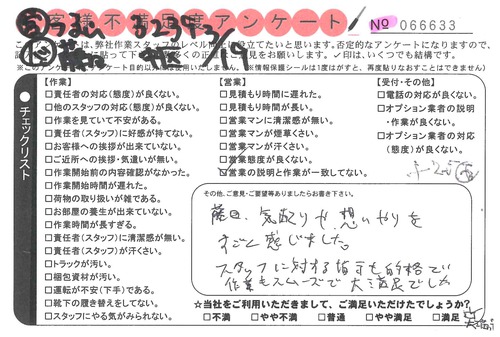 お客様不満足度アンケート
No 066633
3/19
このアンケートは、弊社作業スタッフのレベル向上に役立てたいと思います。否定的なアンケートになりますので、
✓印は、いくつでも結構です。
【作業】
□責任者の対応(態度)が良くない。
□他のスタッフの対応(態度)が良くない。
□作業を見ていて不安がある。
□責任者(スタッフ)に好感が持てない。
□お客様への挨拶が出来ていない。
□ご近所への挨拶・気遣いが無い。
□作業開始前の内容確認がなかった。
□作業開始時間が遅れた。
□荷物の取り扱いが雑である。
□お部屋の養生が出来ていない。
□作業時間が長すぎる。
□責任者(スタッフ)に清潔感が無い。
□責任者(スタッフ)が汗くさい。
□トラックが汚い。
□梱包資材が汚い。
□運転が不安(下手)である。
□靴下の履き替えをしてない。
□スタッフにやる気がみられない。
●チェックリスト
【営業】
□見積もり時間に遅れた。
□見積もり時間が長い。
□営業マンに清潔感が無い。
□営業マンが煙草くさい。
□営業マンが汗くさい。
□営業態度が良くない。
□営業の説明と作業が一致してない。
【受付・その他】
□電話の対応が良くない。
□オプション業者の説明
・作業が良くない。
□オプション業者の対応
(態度)が良くない。
その他、ご意見・ご要望等ありましたらお書き下さい。
気配りや、想いやりを
すごく感じました。
スタッフに対する指示も的確で
作業もスムーズで大満足でした
☆当社をご利用いただきまして、ご満足いただけたでしょうか?
□不満 □やや不満 □普通 □やや満足 □満足